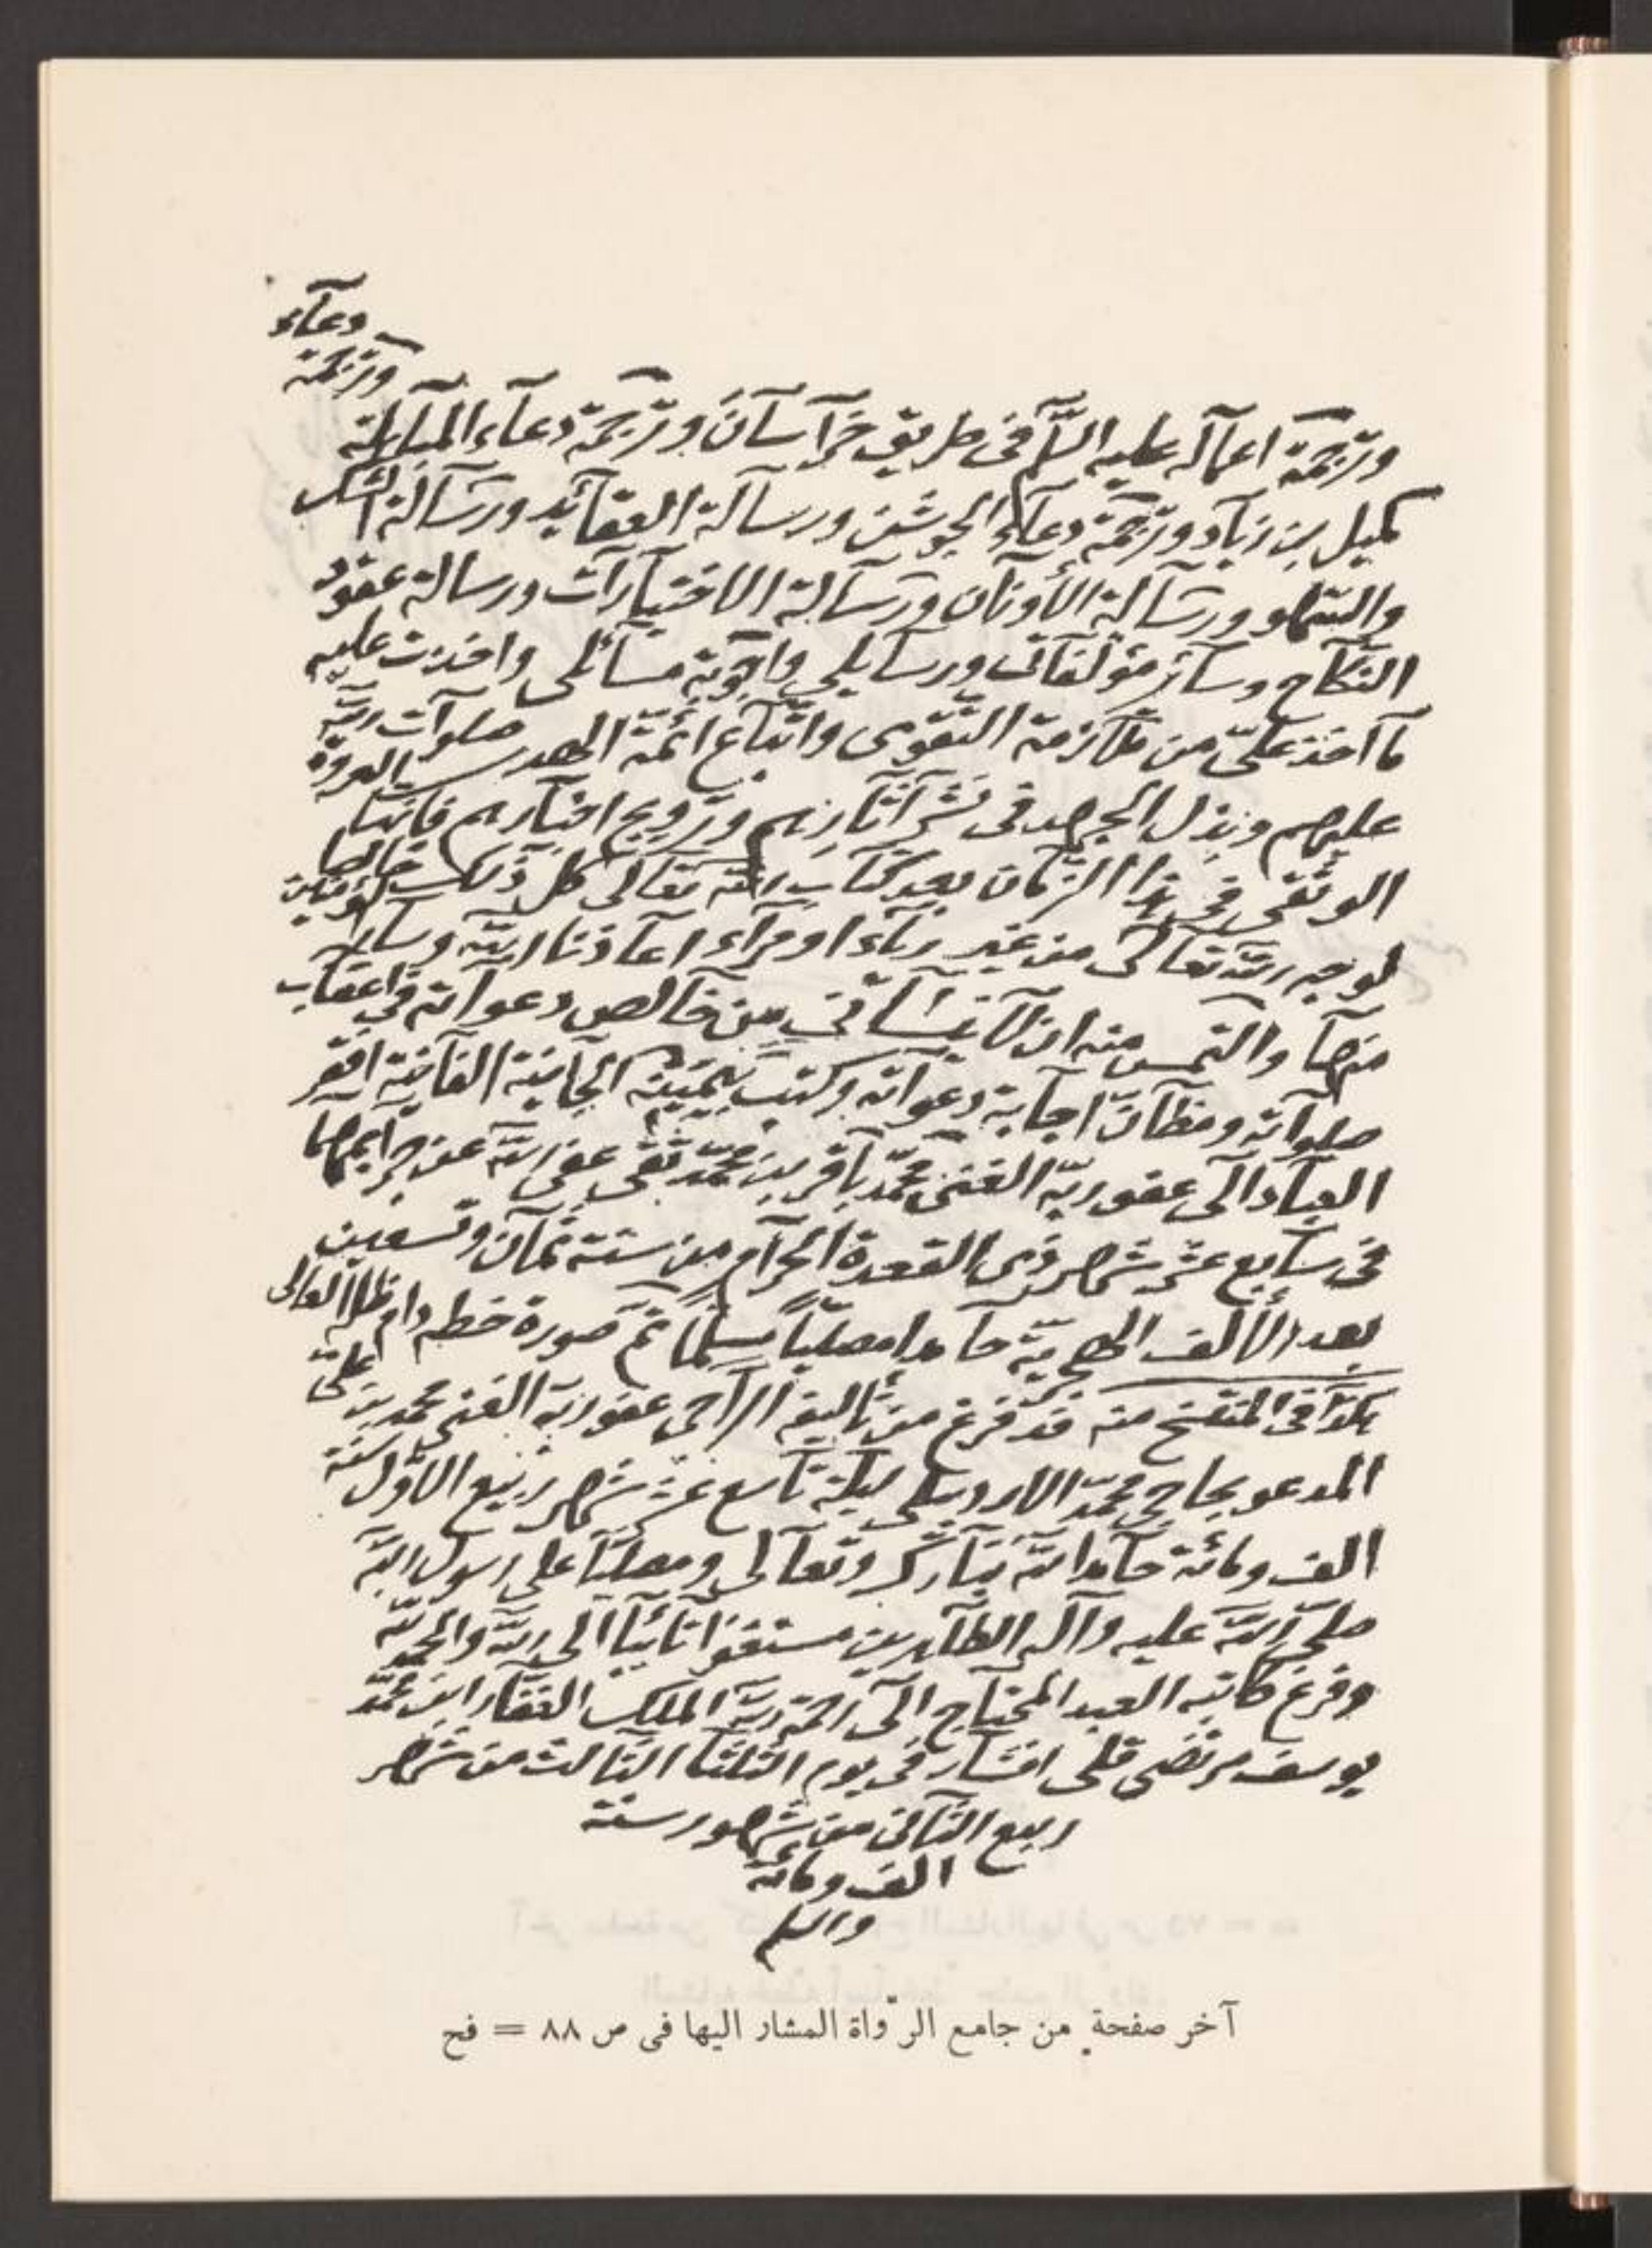 وترجمة اعماله عليه السلم فى طريق خراسان وترجمة دعاء المباهلة وترجمة دعاء
كميل بن زياد وترجمة دعاء الجوشن ورسالة العقائد ورسالة الشك
والسهو ورسالة الأوزان ورسالة الاختيارات ورسالة عقود
النكاح وسائر مؤلفاتى ورسايلى واجوبة مسائلى واخذت عليه
ما اخذ علىّ من ملازمة التقوى واتباع ائمة الهدى صلوات الله
عليهم وبذل الجهد فى نشر آثارهم وترويج اخبارهم فانها العروة
الوثقى فى هذا الزمان بعد كتاب الله تعالى كل ذلك خالصا
لوجه الله تعالى من غير رياء او مراء اعاذنا الله وساير المؤمنين
منها والتمس منه ان لا ينسانى من خالص دعواته فى اعقاب
صلواته ومظان اجابة دعواته وكتب بيمينه الجانية الفانية افقر
العباد الى عفو ربه الغنى محمد باقر بن محمد تقى عفى الله عن جرايمهما
فى سابع عشر شهر ذى القعدة الحرام من سنة ثمان وتسعين
بعد الألف الهجرية حامدا مصلياً مسلماً تم صورة خطه دام ظله العالى
هكذا فى المنتسخ منه قد فرغ من تأليفه الراجى عفو ربه الغنى محمد بن علىّ
المدعو بحاجى محمد الاردبيلى ليلة تاسع عشر شهر ربيع الاول سنة
الف ومائة حامدا لله تبارك وتعالى ومصليا على رسول الله
صلى الله عليه وآله الطاهرين مستغفرا تائبا الى الله والحمد لله
وفرغ كاتبه العبد المحتاج الى رحمة ربه الملك الغفار ابن محمد
يوسف مرتضى قلى افشار فى يوم الثلثا الثالث من شهر
ربيع الثانى من شهور سنة
الف ومائة
والسلم
آخر صفحة من جامع الرّواة المشار اليها فى ص ٨٨ = فح